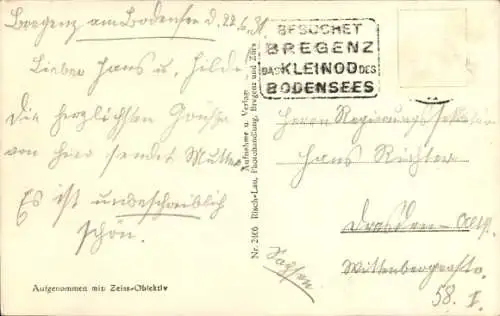 Bregenz am Bodensee d. 22.6.31
Lieber Hans u. Hilde
Die herzlichsten Grüsse
von hier sendet Mutter
Es ist unbeschreiblich
schön.
Aufgenommen mit Zeiss-Objektiv
Nr. 2406 Risch-Lau, Photohandlung, Bregenz und
Aufnahme u. Verlag
BESUCHET
BREGENZ
DAS KLEINOD DES
BODENSEES
Herrn Regierungs
Hans Richter
Dresden-Altst.
Wittenbergerstr.
58. I.
Sachsen